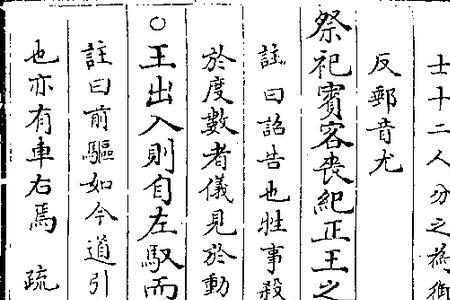 士十二人分之為
反郵音尤
祭祀賓客喪紀正王之
註曰詔告也牲事殺
於度數者儀見於動
○王出入則自左馭而
註曰前驅如今道引
也亦有車右焉　疏